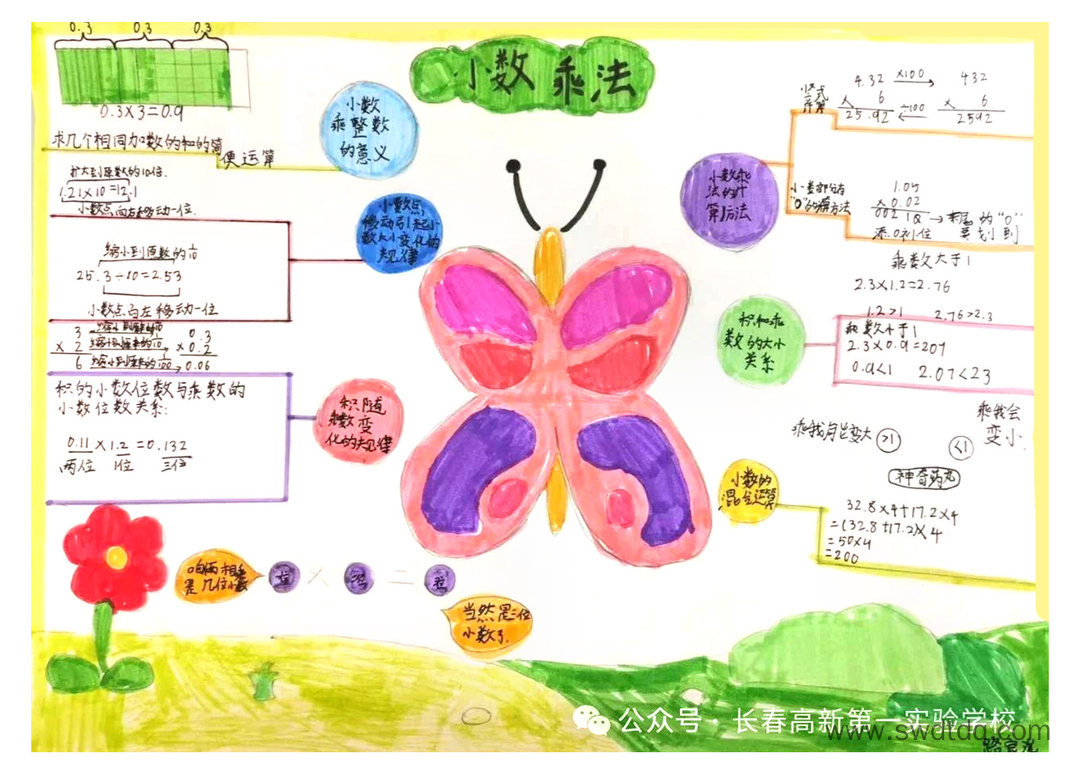 小数乘法
0.3 0.3 0.3
0.3×3=0.9
求几个相同加数的和的简
便运算
小数
乘整数
的意义
扩大到原数的10倍.
1.21×10=12.1
小数点向右移动一位.
缩小到原数的1/10
25.3÷10=2.53
小数点向左移动一位
小数点
移动引起小
数大小变化的
规律
3 0.3
× 2 × 0.2
6 0.06
积的小数位数与乘数的
小数位数关系:
0.11×1.2=0.132
两位 1位 三位
积随
乘数变
化的规律
小数乘
法的计
算方法
4.32 ×100 432
× 6 ÷100 × 6
25.92 2592
1.05
×0.02
→末尾的“0”
添0补位 要划到
积和乘
数的大小
关系
乘数大于1
2.3×1.2=2.76
1.2>1 2.76>2.3
2.3×0.9=207
0.9<1 2.07<23
乘我会
变小
>1
<1
神奇药丸
小数的
混合运算
32.8×4+17.2×4
=(32.8+17.2)×4
=50×4
=200
咱俩相乘
是几位小数
当然是三位
小数了
公众号·长春高新第一实验学校
www.swdtdq.com